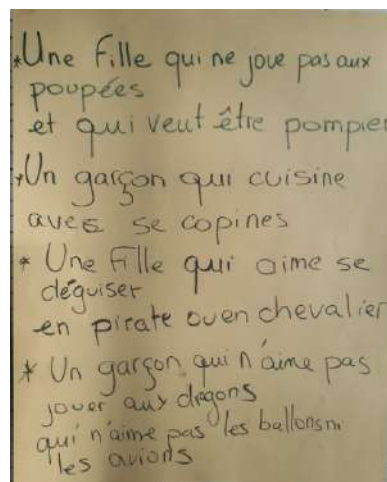 *Une fille qui ne joue pas aux
poupées
et qui veut être pompier
*Un garçon qui cuisine
avec se copines
* Une fille qui aime se
déguiser
en pirate ou en chevalier
* Un garçon qui n'aime pas
jouer aux dragons
qui n'aime pas les ballons ni
les avions